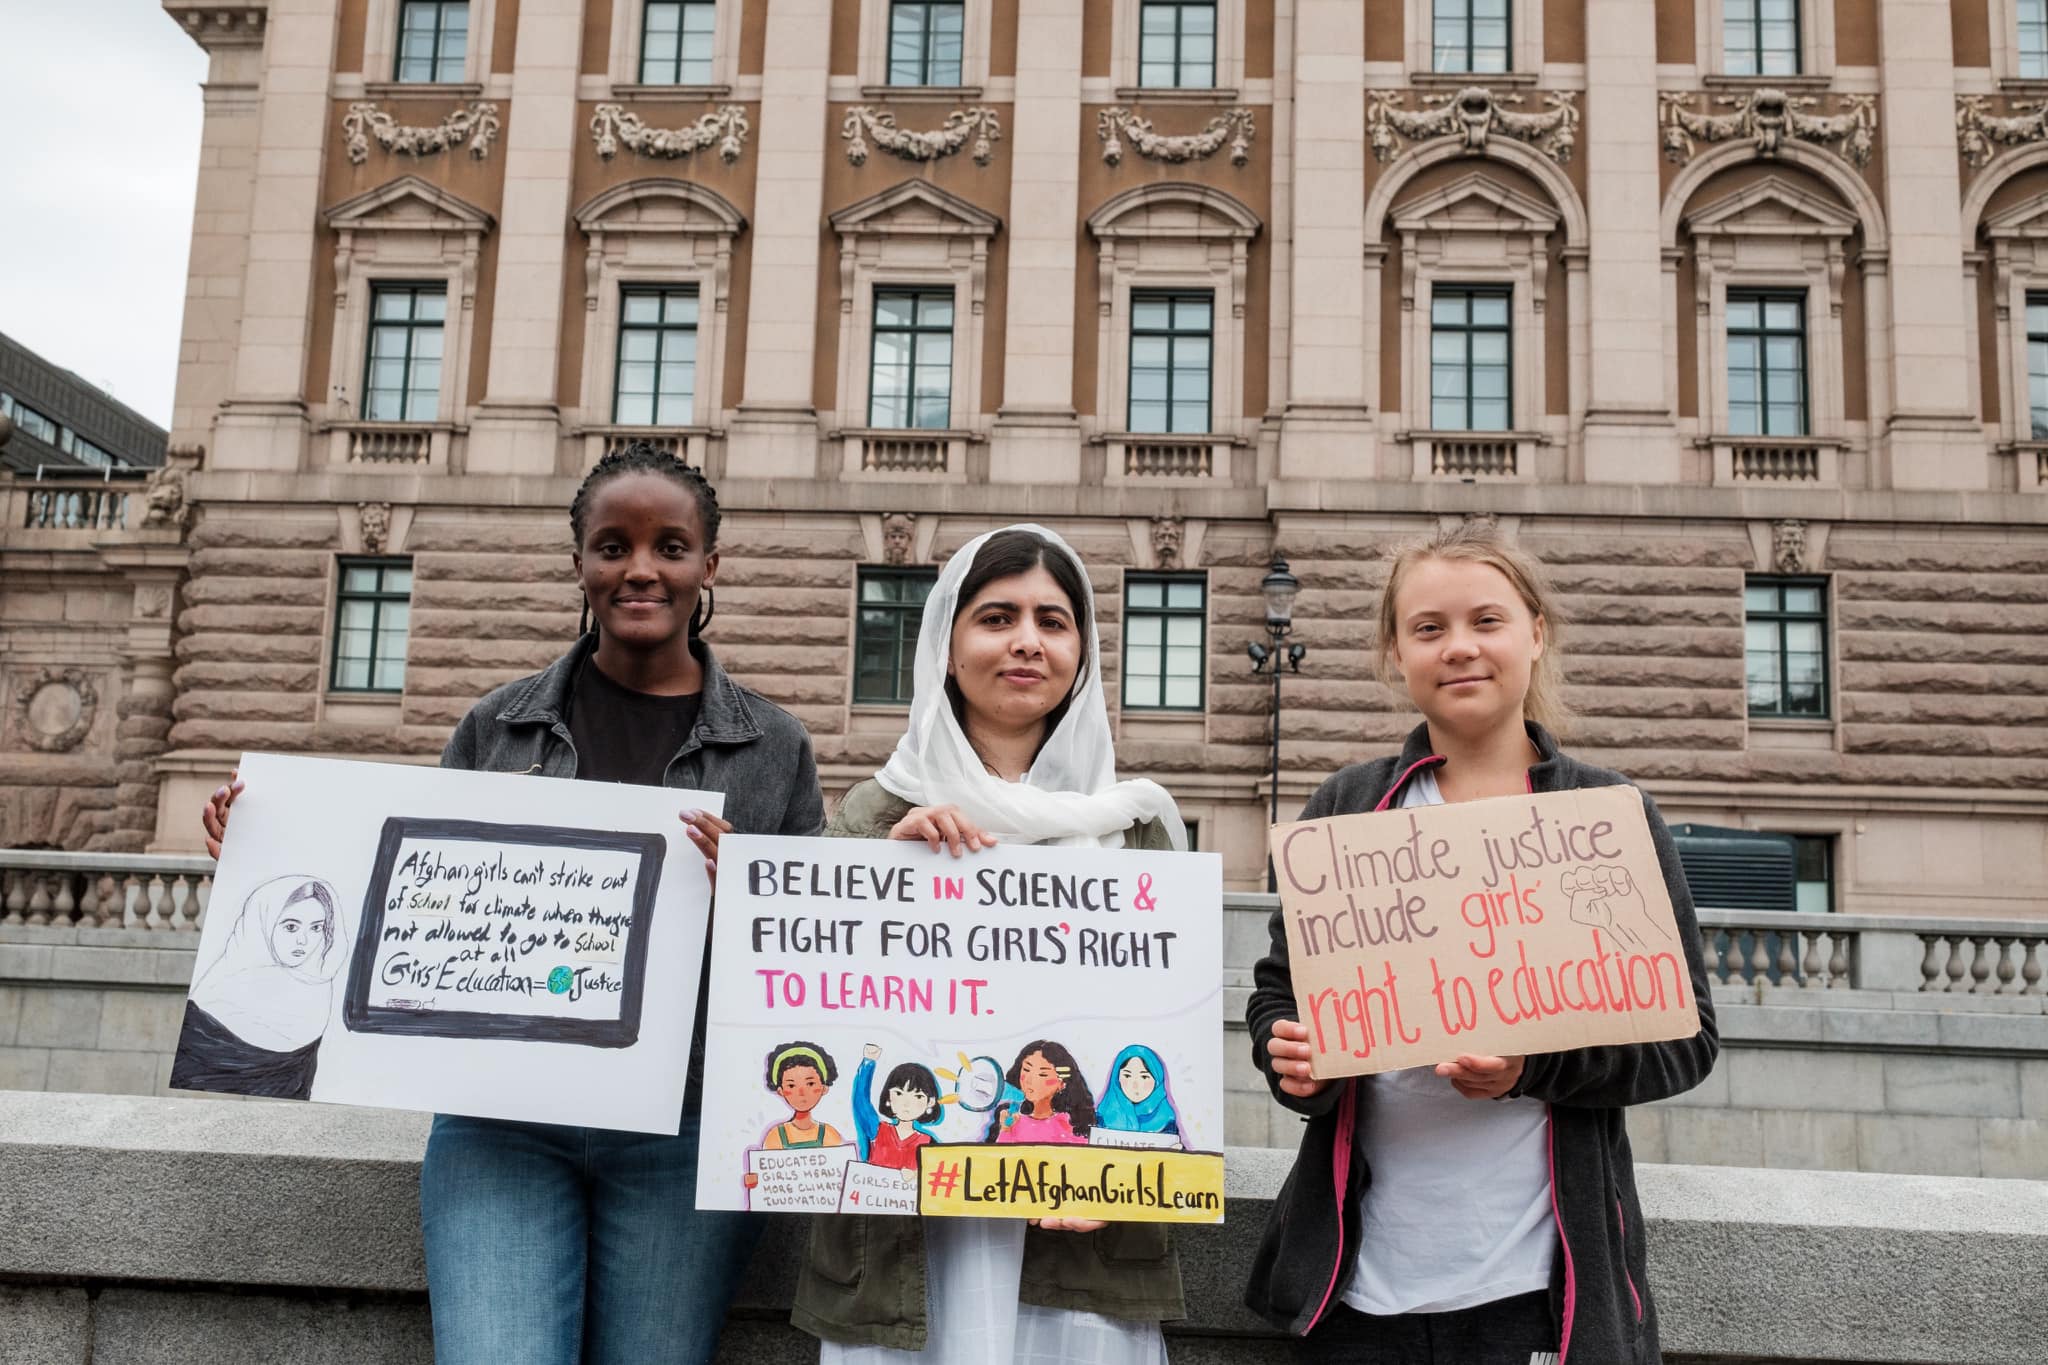 Afghan girls can't strike out
of School for climate when they're
not allowed to go to School
at all
Girs' Education= Justice
BELIEVE IN SCIENCE &
FIGHT FOR GIRLS' RIGHT
TO LEARN IT.
EDUCATED
GIRLS MEANS
MORE CLIMATE
INNOVATION
GIRLS EDU
4 CLIMAT
CLIMATE
#LetAfghanGirlsLearn
Climate justice
include girls'
right to education